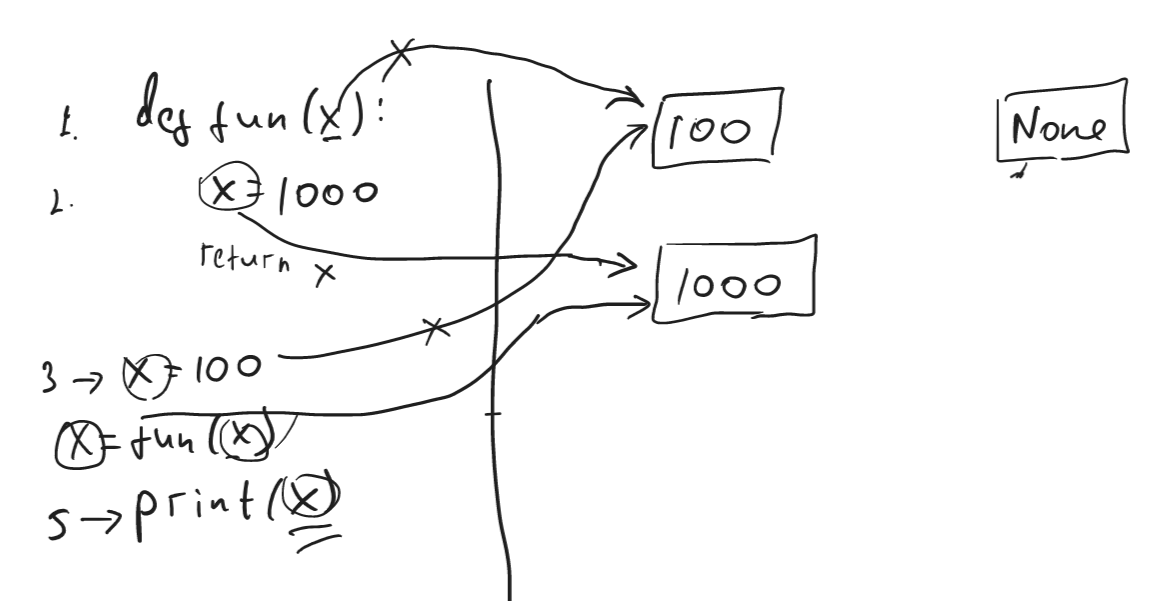 1. def fun(x):
2. x = 1000
return x
3 → x = 100
x = fun(x)
5 → print(x)
100
1000
None